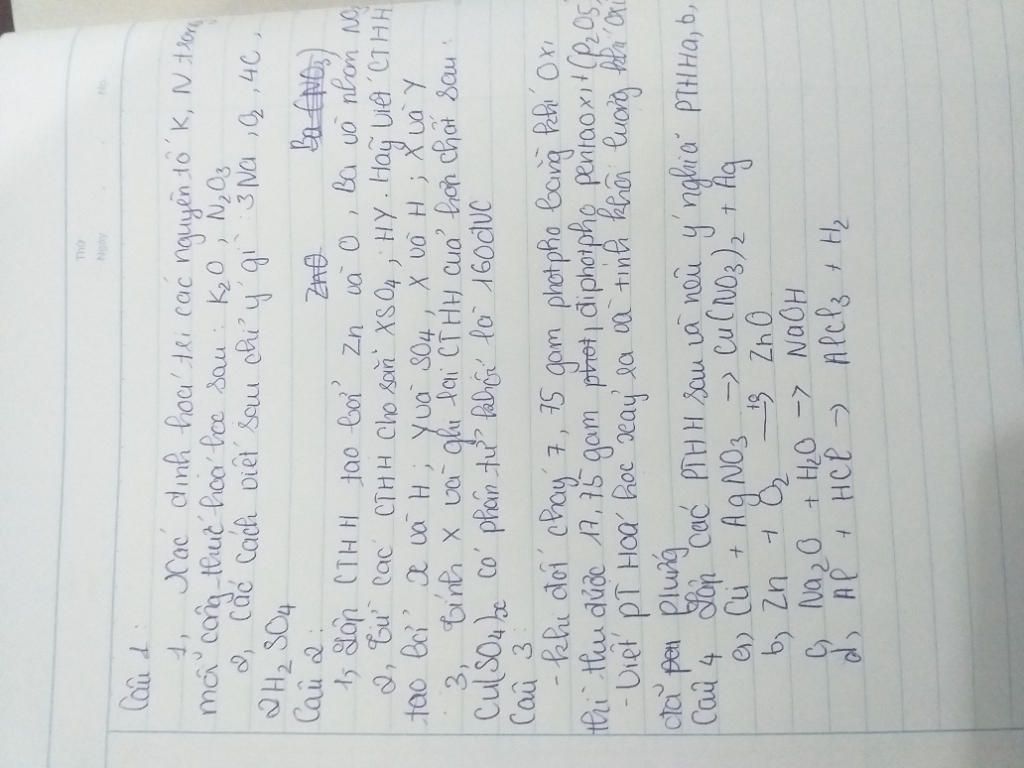 Thứ
Ngày
No.
Câu 1:
1, Xác định hoá trị các nguyên tố K, N trong
mỗi công thức hóa học sau: K2O, N2O3
2, Các cách viết sau chỉ ý gì: 3Na, O2, 4C,
2H2SO4
Câu 2: ZnO Ba(NO3)
1, Lập CTHH tạo bởi Zn và O, Ba và nhóm NO3
2, từ các CTHH cho sẵn XSO4, HY. Hãy viết CTHH
tạo bởi X và H; Y và SO4, X và H; X và Y
3, tính x và ghi lại CTHH của hợp chất sau:
Cu(SO4)x có phân tử khối là 160đVC
Câu 3:
- khi đốt cháy 7,75 gam photpho bằng khí Oxi
thì thu được 17,75 gam phot điphotpho pentaoxi + (P2O5)
- Viết PT Hoá học xảy ra và tính khối lượng khí Oxi
đã pư phản ứng
Câu 4 Lập các PTHH sau và nêu ý nghĩa PTHH a, b,
a, Cu + AgNO3 → Cu(NO3)2 + Ag
b, Zn + O2 →to ZnO
c, Na2O + H2O → NaOH
d, Al + HCl → AlCl3 + H2